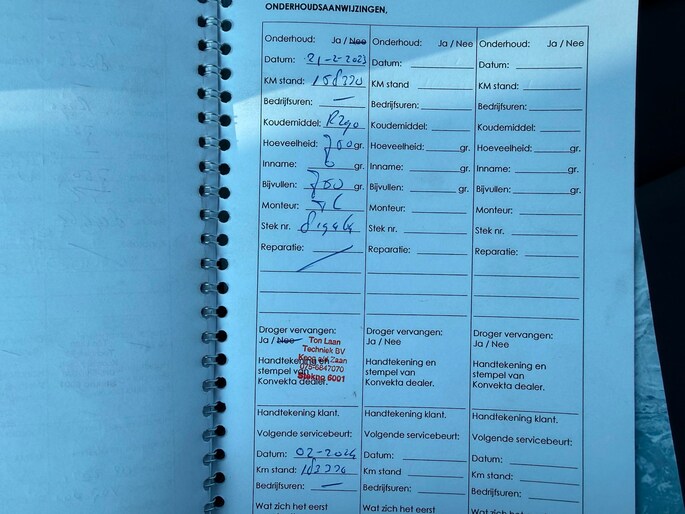 ONDERHOUDSAANWIJZINGEN.
Onderhoud: Ja / Nee
Datum: 21-2-2023
KM stand: 158330
Bedrijfsuren: —
Koudemiddel:
Hoeveelheid: 700 gr.
Inname: 0 gr.
Bijvullen: 700 gr.
Monteur:
Stek nr.
Reparatie:
Droger vervangen:
Ja / Nee
Handtekening en
stempel van
Konvekta dealer.
Ton Laan
Techniek BV
Koog a/d Zaan
075-6847070
Stekno 6001
Handtekening klant.
Volgende servicebeurt:
Datum: 02-2024
Km stand:
Bedrijfsuren: —
Wat zich het eerst
Onderhoud: Ja / Nee
Datum:
KM stand
Bedrijfsuren:
Koudemiddel:
Hoeveelheid: gr.
Inname: gr.
Bijvullen: gr.
Monteur:
Stek nr.
Reparatie:
Droger vervangen:
Ja / Nee
Handtekening en
stempel van
Konvekta dealer.
Handtekening klant.
Volgende servicebeurt:
Datum:
Km stand
Bedrijfsuren:
Wat zich het eerst
Onderhoud: Ja / Nee
Datum:
KM stand:
Bedrijfsuren:
Koudemiddel:
Hoeveelheid: gr.
Inname: gr.
Bijvullen: gr.
Monteur:
Stek nr.
Reparatie:
Droger vervangen:
Ja / Nee
Handtekening en
stempel van
Konvekta dealer.
Handtekening klant.
Volgende servicebeurt:
Datum:
Km stand:
Bedrijfsuren:
Wat zich het eerst